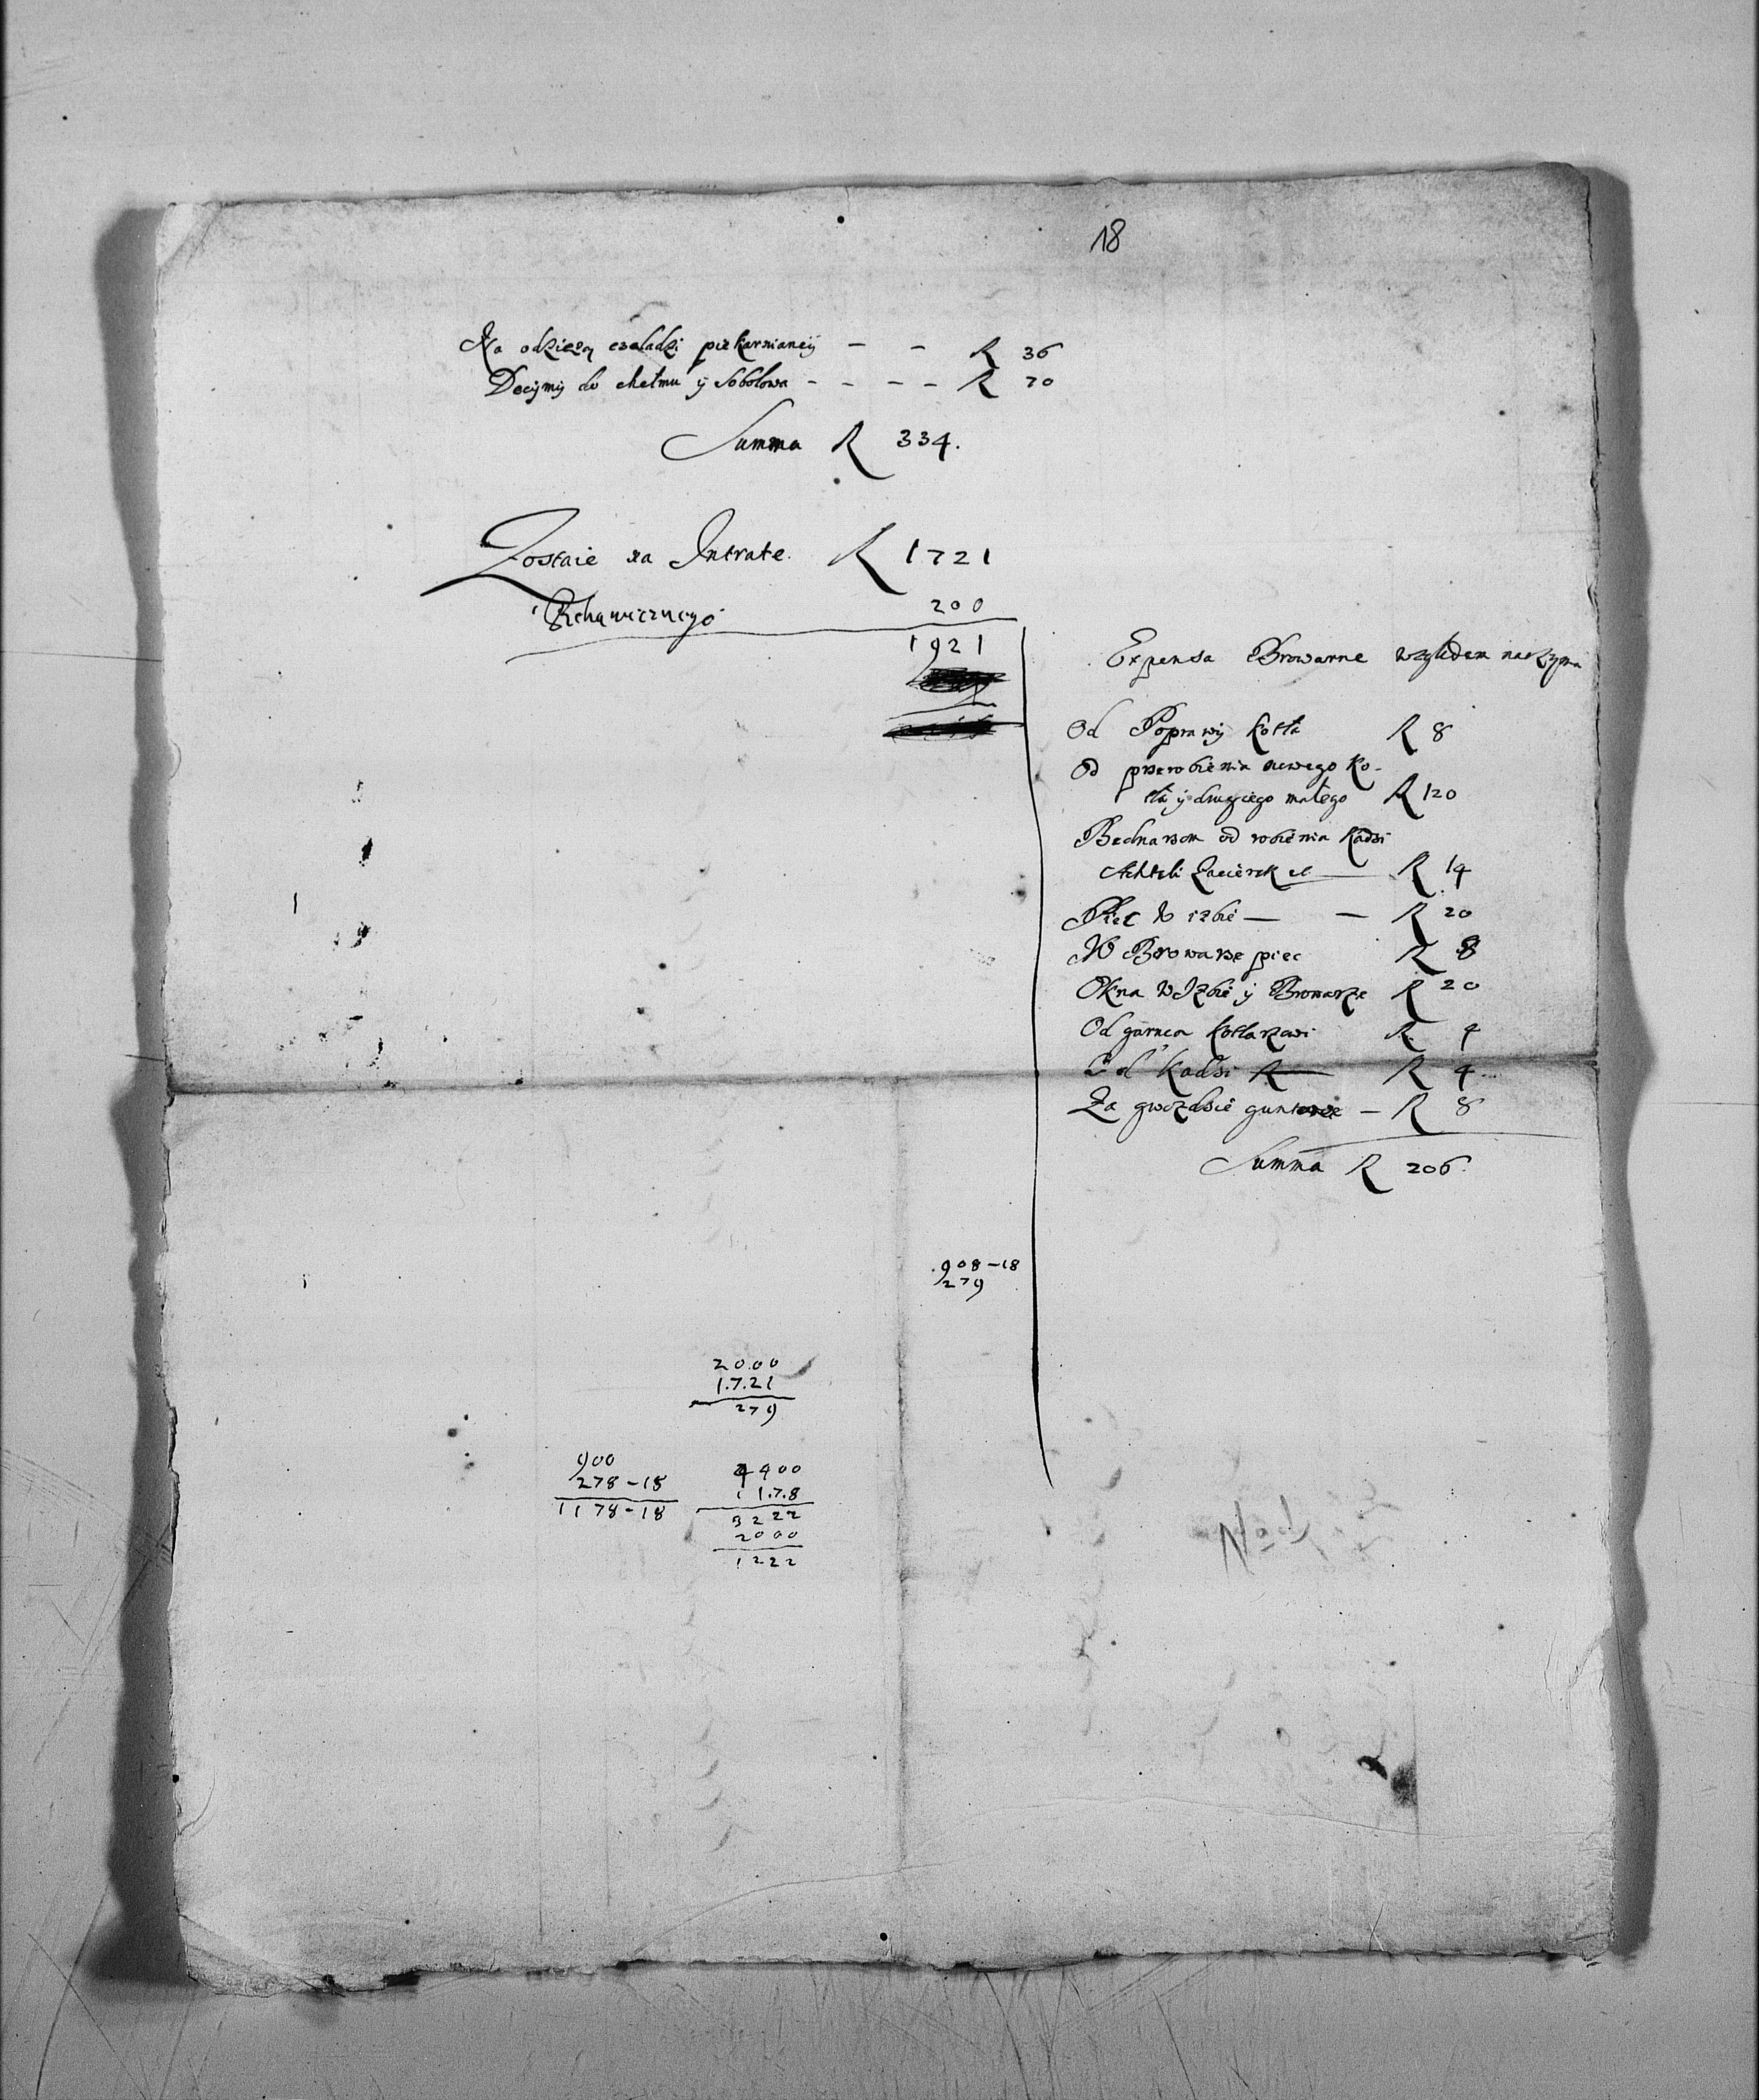 18
Na odzieżą czeladzi piekarnianey — — R 36
Decymy do chełmu y Sobolowa - - - - R 20
Summa R 334.
Zostaie na Intrate. R 1721
200
1921
Expensa Browarne względem naczynia
Od Poprawy kotła R 8
Od przerobienia nowego ko-
tła y drugiego małego R 120
Bednarzom od robienia kadzi
Achteli Zacierek et R 14
Piec w izbie — — R 20
W Browarze piec R 8
Okna w Izbie y Browarze R 20
Od garnca kotlarzowi R 4
Od kadzi R 4
Za gwozdzie guntowe — R 8
Summa R 206.
908-18
279
20.00
1.7.21
279
900
278-18
1178-18
4400
1 1.7.8
3222
2000
1222